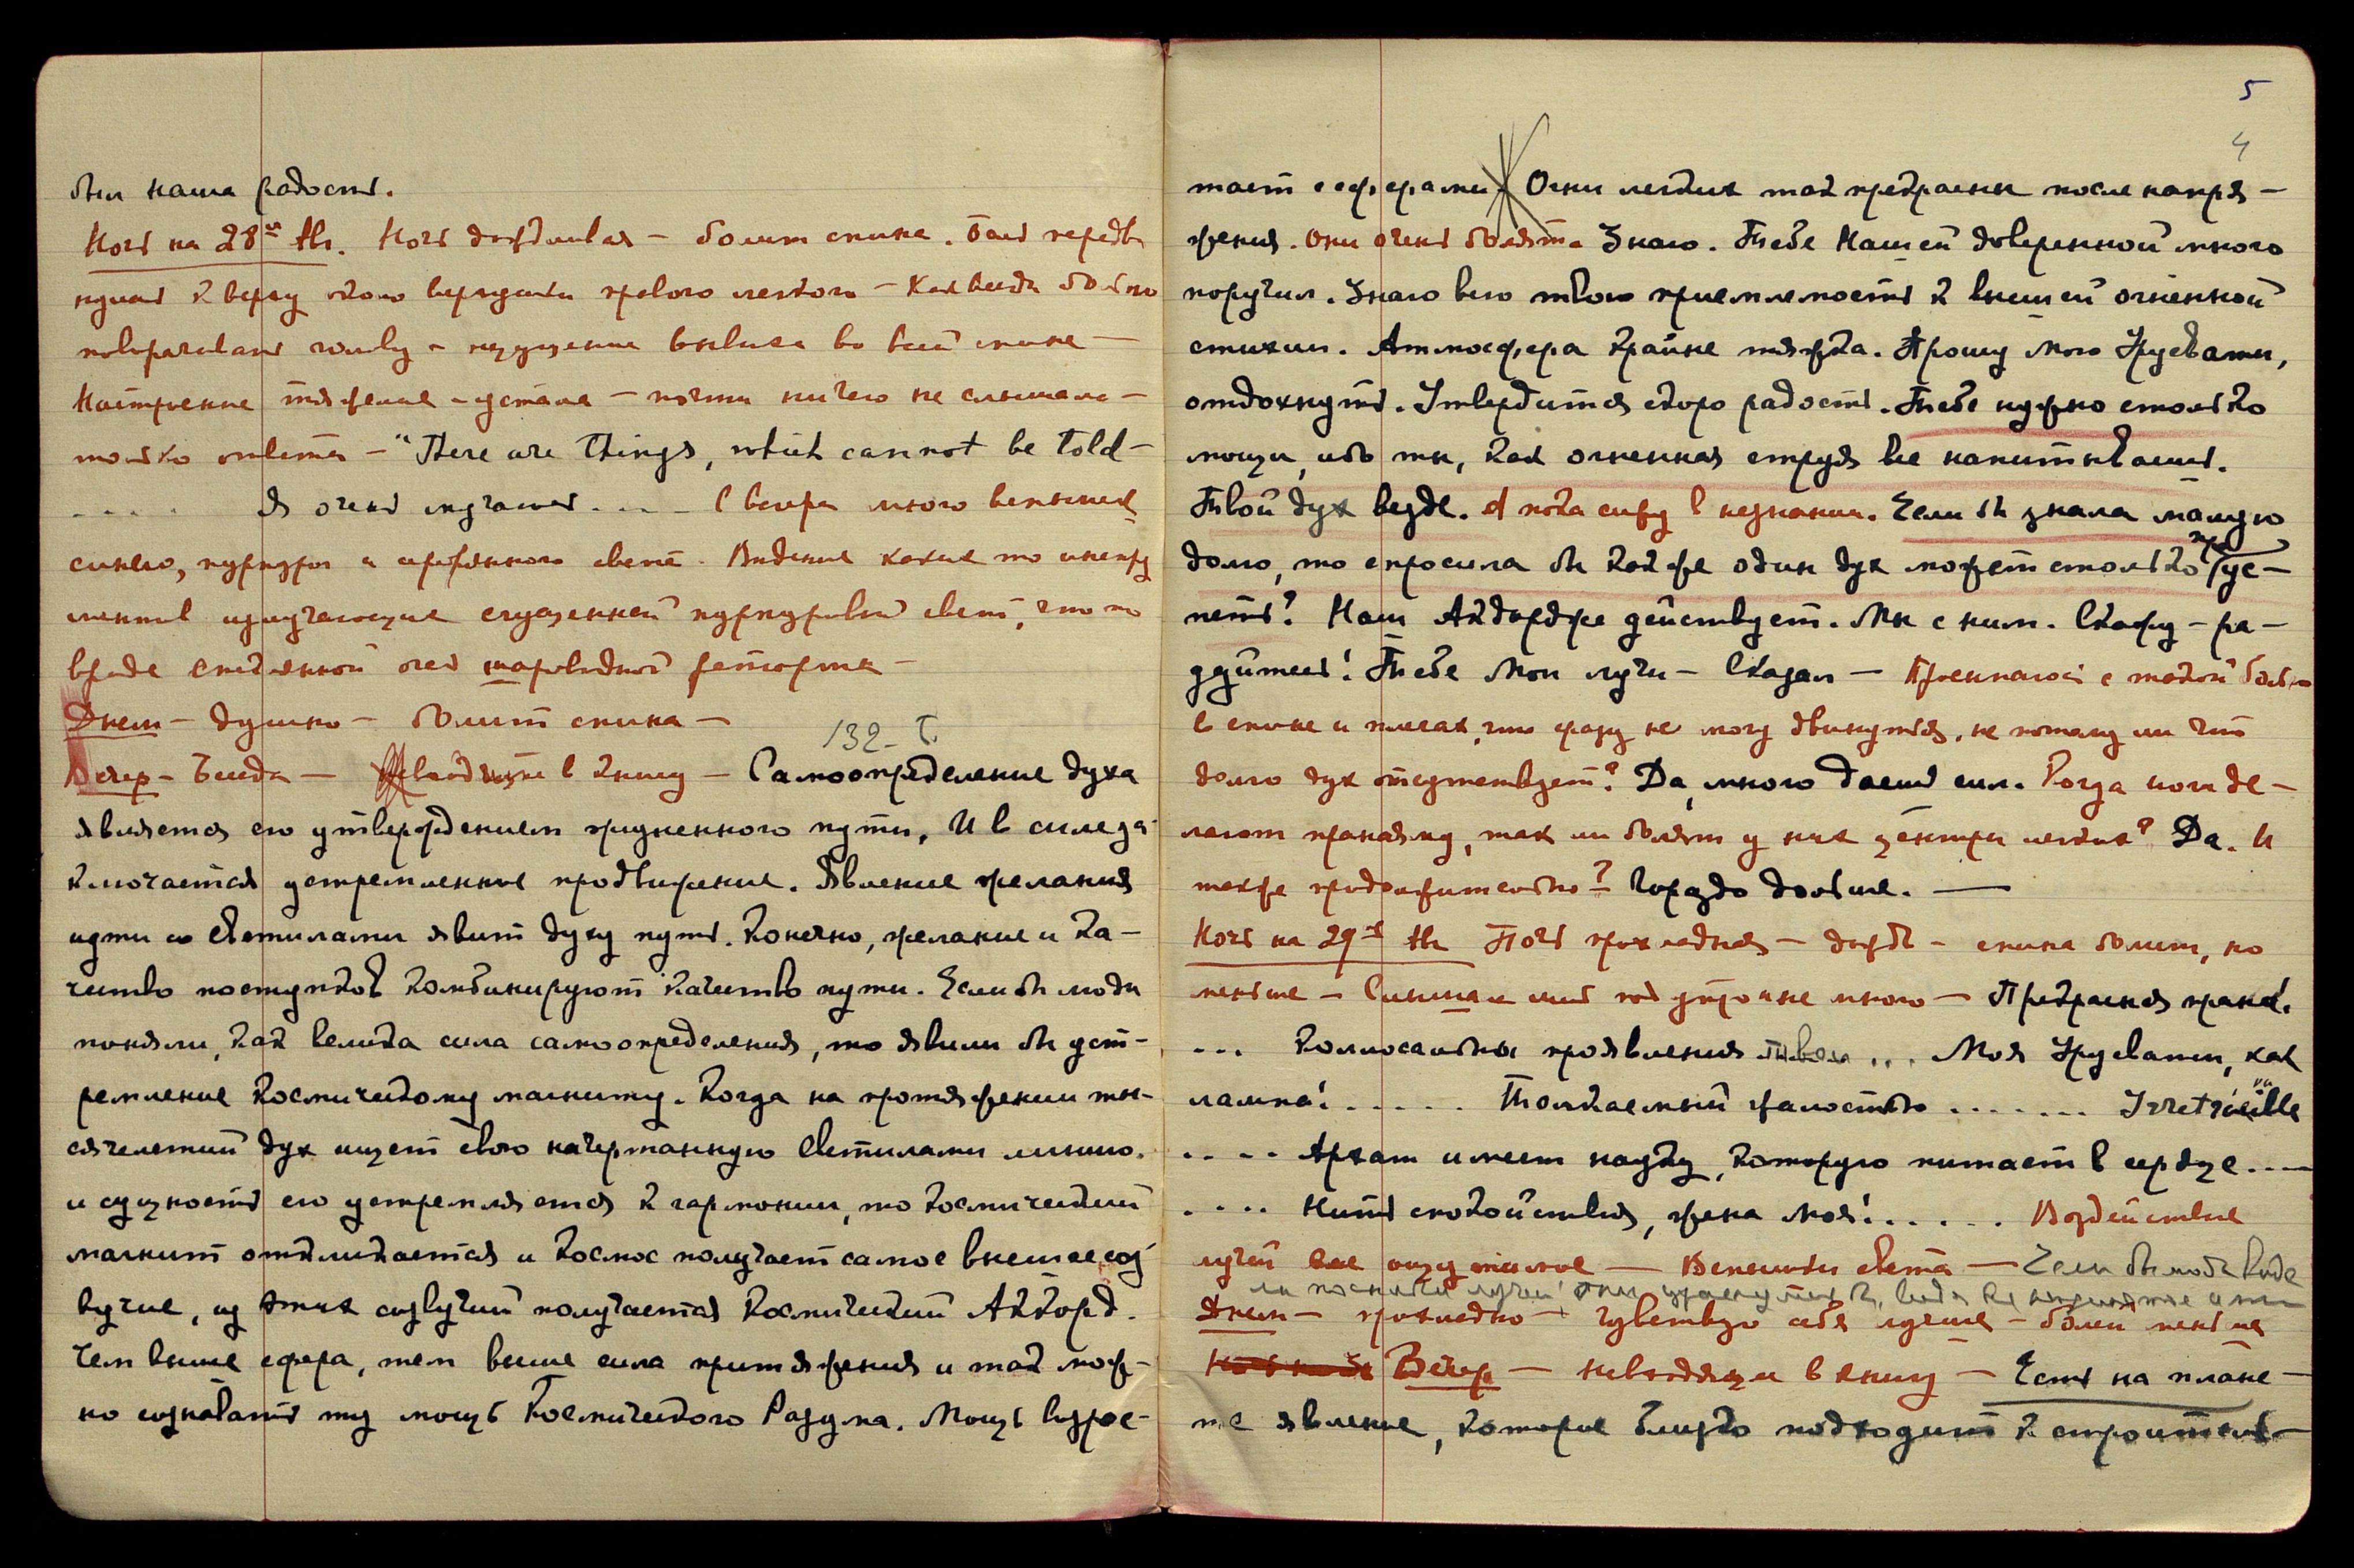 был наша радость.
Ночь на 28ое th. Ночь дождливая – болит спина. Боль передви
нулась к верху около верхушки правого легкого – Как всегда больно
поворачивать голову и ощущение вывиха во всей спине –
Настроение тяжелое – устала – почти ничего не слышала –
только ответы – "There are things, which cannot be told –
. . . . . Я очень мучаюсь . . . – С вечера много вспышек
синего, пурпура и серебряного света. Видение каких то инстру
ментов излучающие сгущенный пурпуровый свет, что то
вроде стеклянной шаровидной реторты –
Днем – душно – болит спина –
132 –
Вечер – Беседа – в книгу – Самоопределение духа
является его утверждением жизненного пути. И в силе за
ключается устремленное продвижение. Явление желания
идти со Светилами явит духу путь. Конечно, желание и ка–
чество поступков комбинируют качество пути. Если бы люди
поняли, как велика сила самоопределения, то явили бы уст–
ремление Космическому магниту. Когда на протяжении ты–
сячелетий дух ищет свою начертанную Светилами линию.
и сущность его устремляется к гармонии, то космический
магнит откликается и космос получает самое высшее соз
вучие, из этих созвучий получается Космический Аккорд.
Чем выше сфера, тем выше сила притяжения и так мож–
но сознавать ту мощь Космического Разума. Мощь возрос–
5
4
тает с сферами. Огни легких так прекрасны после напря–
жения. Они очень болят. Знаю. Тебе Нашей доверенной много
поручил. Знаю всю твою приемлемость к высшей огненной
стихии. Атмосфера крайне тяжка. Прошу мою Урусвати,
отдохнуть. Утвердится скоро радость. Тебе нужно столько
мощи, ибо ты, как огненная струя все напитываешь.
Твой дух везде. А пока сижу в незнании. Если бы знала малую
долю, то спросила бы как же один дух может столько ус–
петь? Наш Акдордже действует. Мы с ним. Скажу – ра–
дуйтесь! Тебе Мои лучи – Сказал – Просыпаюсь с такой болью
в спине и плечах, что сразу не могу двинуться, не потому ли что
долго дух отсутствует? Да, много даешь сил. Когда йоги де–
лают пранаяму, так ли болят у них центры легких? Да. И
также продолжительно? Гораздо дольше. –
Ночь на 29ое th Ночь прохладная – дождь – спина болит, но
меньше – Слышала под утро не много – Прекрасная прана!
. . . Колоссальны проявления . . . Моя Урусвати, как
лампа! . . . . . Толкаемый жалостью . . . . . . . Irretrievable
. . . . Архат имеет науку, которую питает в сердце . . . –
. . . . Нить спокойствия, жена моя! . . . . . . Воздействие
лучей ощутимое – Вспышки света – Если бы люди виде
ли лучи!
Днем – прохладно – чувствую себя лучше – болей меньше
Вечер – в книгу – Есть на плане–
те явление, которое близко подходит к строитель–